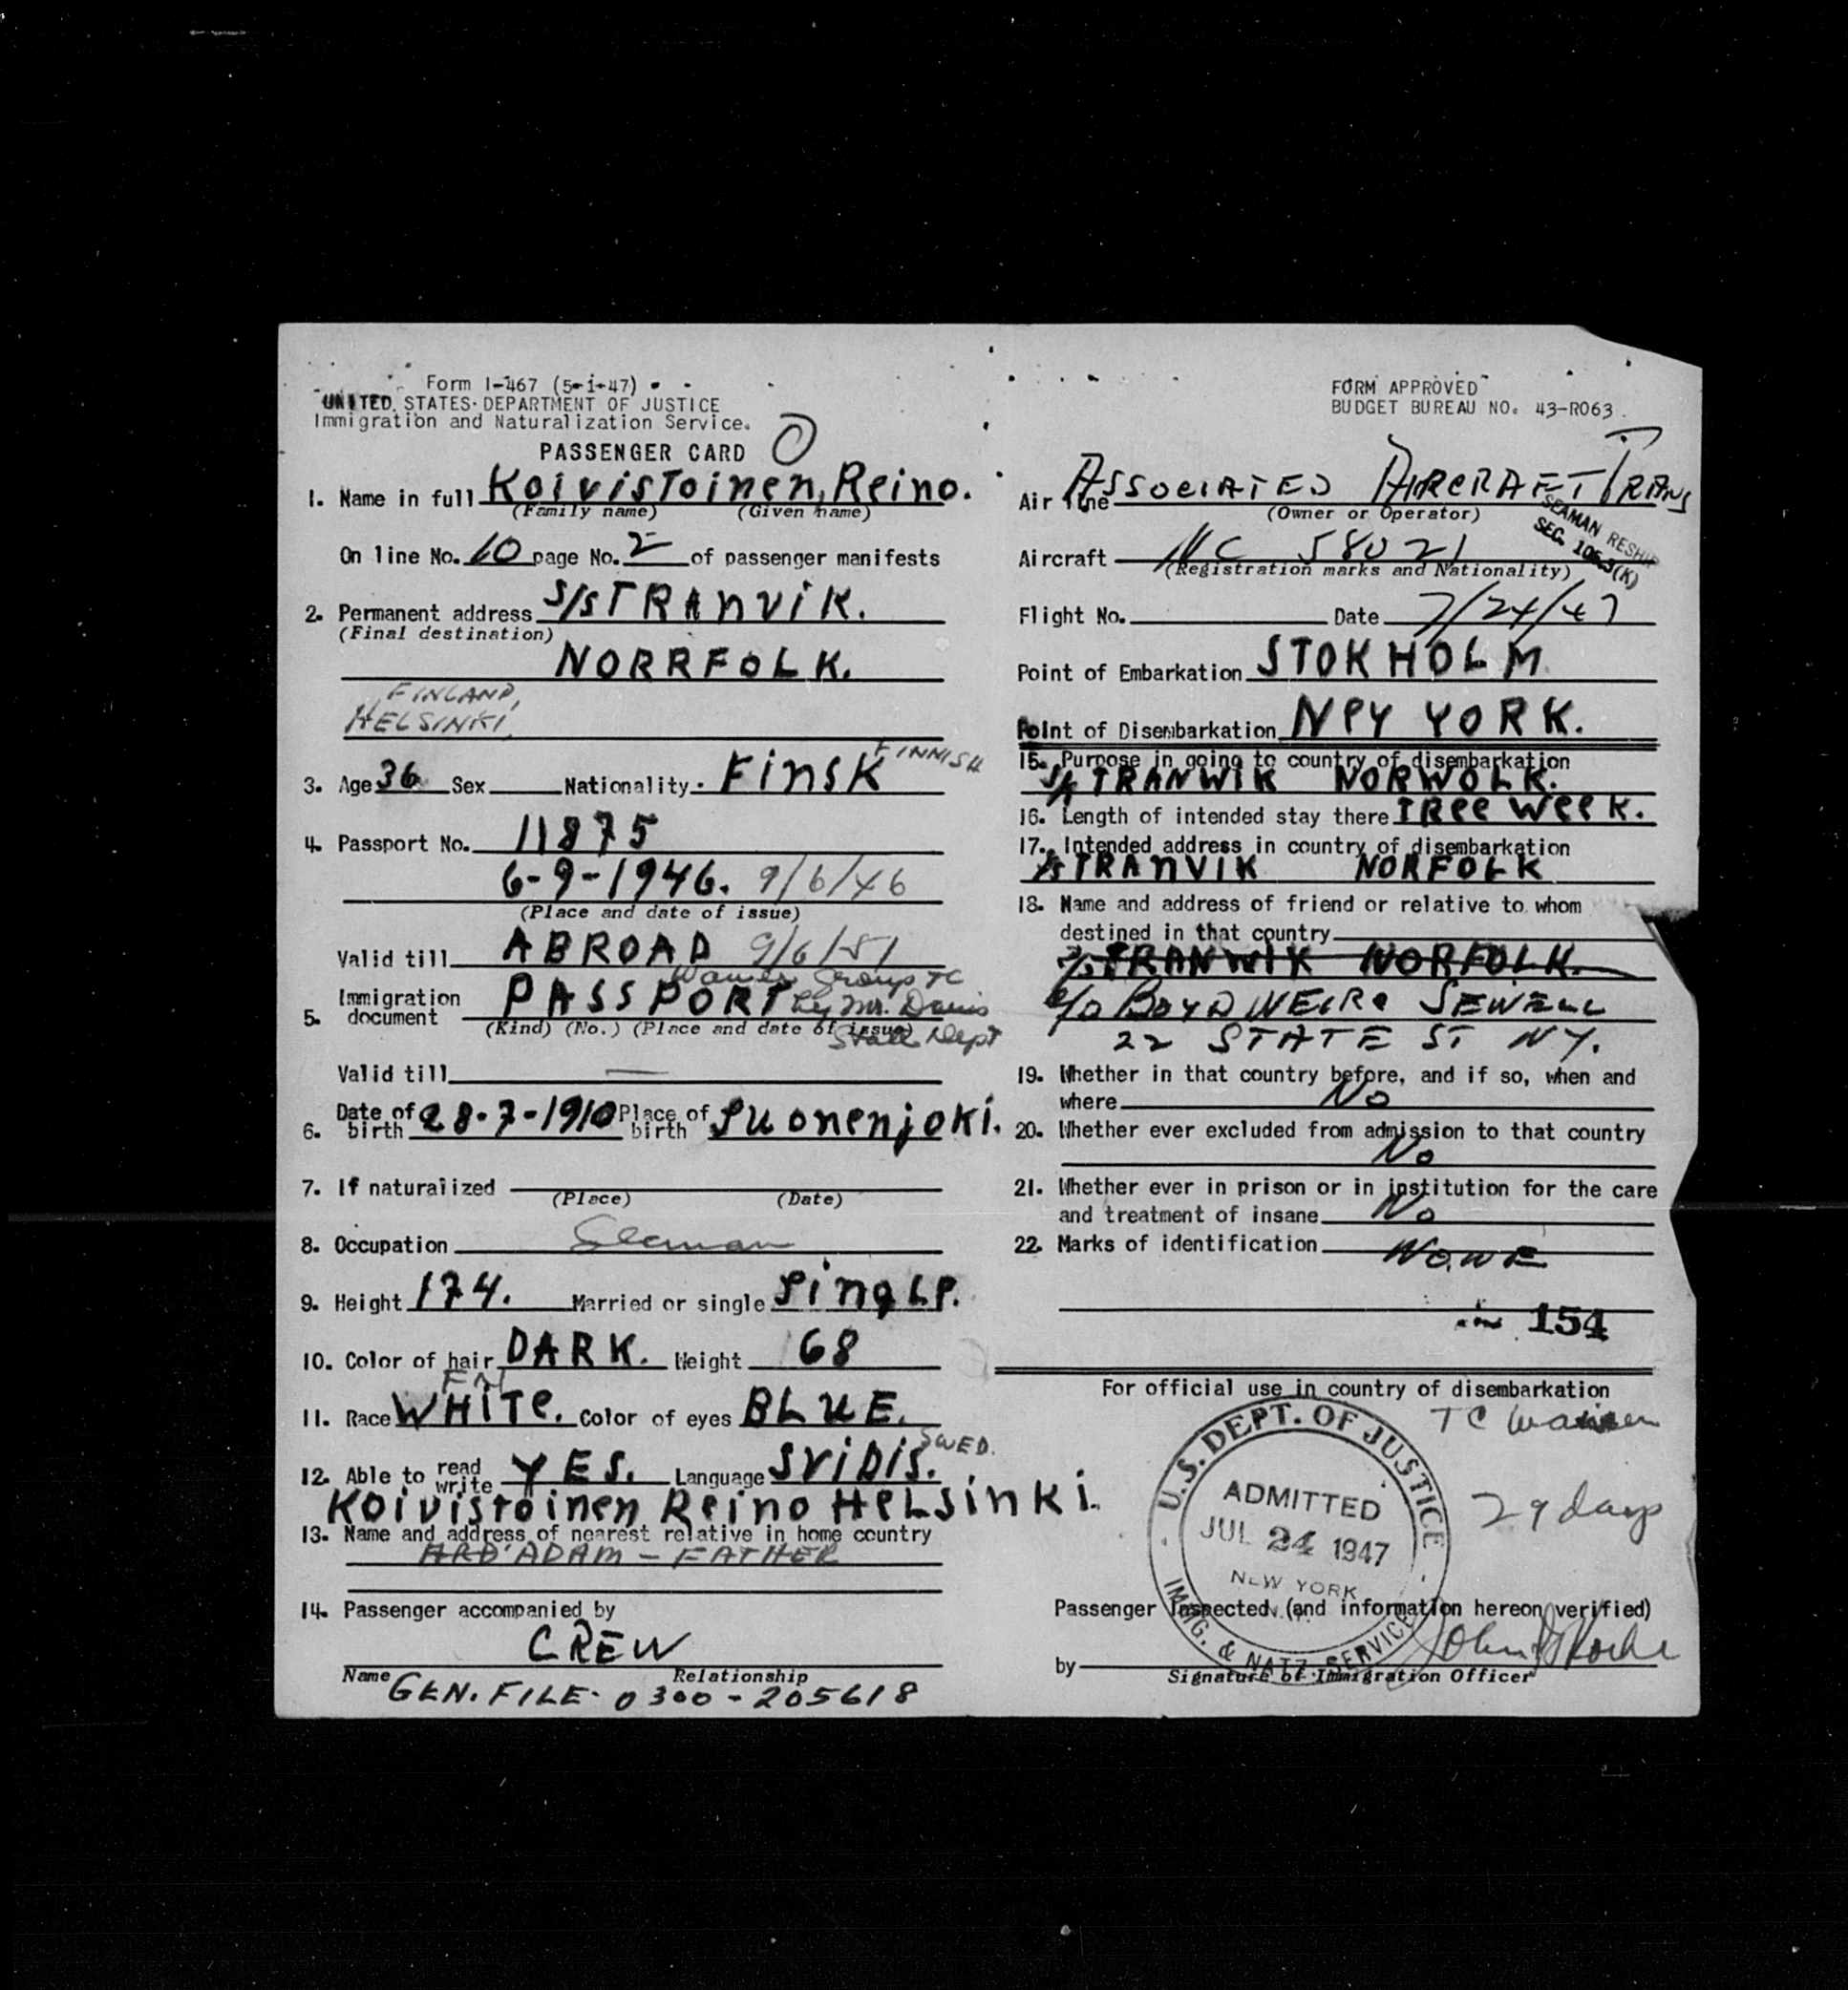 Form I-467 (5-1-47)
UNITED STATES DEPARTMENT OF JUSTICE
Immigration and Naturalization Service.
PASSENGER CARD
1. Name in full Koivistoinen, Reino.
(Family name) (Given name)
On line No. 10 page No. 2 of passenger manifests
2. Permanent address S/S TRANVIK.
(Final destination)
NORRFOLK.
FINLAND,
HELSINKI,
3. Age 36 Sex Nationality. FinSK FINNISH
4. Passport No. 11875
6-9-1946. 9/6/46
(Place and date of issue)
Valid till ABROAD 9/6/51
Group TC
5. Immigration document PASSPORT by Mr. Davis
(Kind) (No.) (Place and date of issue)
State Dept
Valid till —
6. Date of birth 28-7-1910 Place of birth Suonenjoki.
7. If naturalized
(Place) (Date)
8. Occupation Seaman
9. Height 174. Married or single SingLe.
10. Color of hair DARK. Weight 68
FN
11. Race WHITe. Color of eyes BLUE.
12. Able to read write YES. Language SViDiS. SWED.
KOiViSTOinen Reino HeLSinKi.
13. Name and address of nearest relative in home country
ADAM - FATHER
14. Passenger accompanied by
CREW
Name Relationship
GEN. FILE- 0300-205618
FORM APPROVED
BUDGET BUREAU NO. 43-R063.
Air line ASSOCIATED AIRCRAFT TRANS
(Owner or Operator)
SEAMAN RESHIP
SEC. 106.3(K)
Aircraft NC 58021
(Registration marks and Nationality)
Flight No. Date 7/24/47
Point of Embarkation STOKHOLM
Point of Disembarkation NeY YORK.
15. Purpose in going to country of disembarkation
S/S TRANWIK NORWOLK.
16. Length of intended stay there TRee Week.
17. Intended address in country of disembarkation
S/S TRANVIK NORFOLK
18. Name and address of friend or relative to whom
destined in that country
S/S TRANWIK NORFOLK.
c/o BOYD WEIR & SEWELL
22 STATE ST NY.
19. Whether in that country before, and if so, when and
where No
20. Whether ever excluded from admission to that country
No
21. Whether ever in prison or in institution for the care
and treatment of insane No
22. Marks of identification NONE
154
For official use in country of disembarkation
TC
U.S. DEPT. OF JUSTICE
ADMITTED
JUL 24 1947
NEW YORK
IMMIG. & NATZ. SERVICE
29 days
Passenger Inspected (and information hereon verified)
by
Signature of Immigration Officer